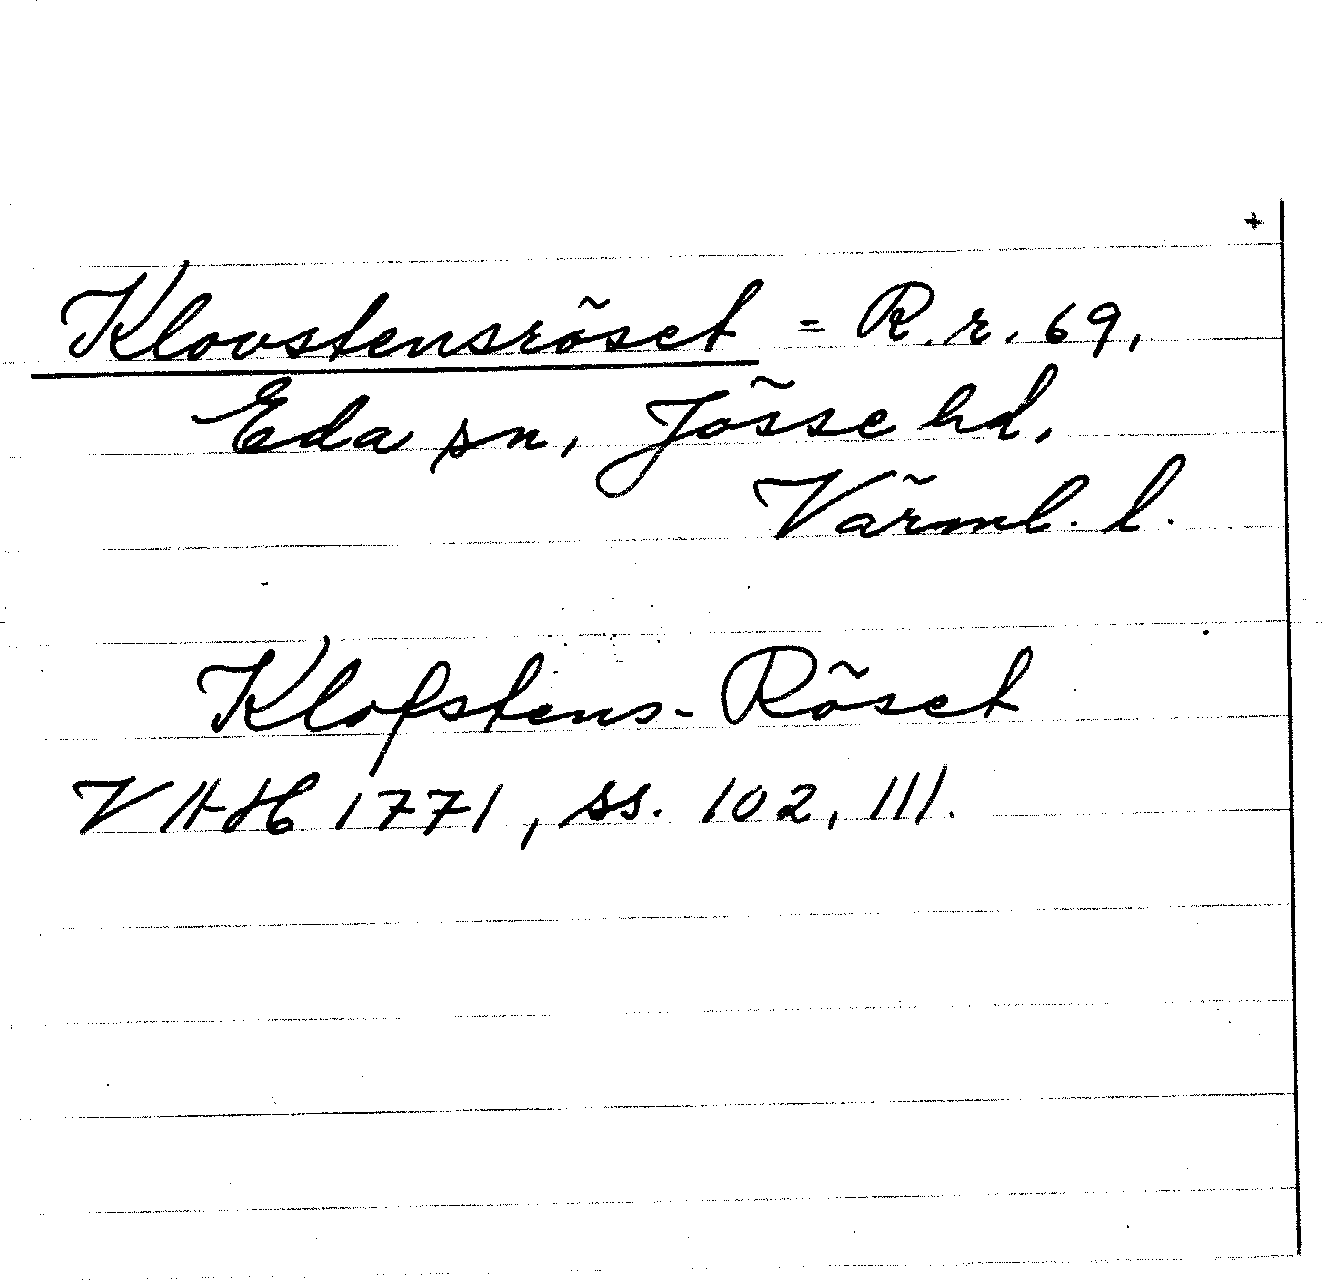 +
Klovstensröset = R.r. 69,
Eda sn, Jösse hd,
Värml. l.
Klofstens-Röset
VHH 1771, ss. 102, 111.